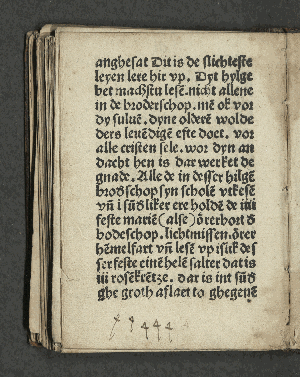 anghesat Dit is de slichteste
leyen lere hir vp. Dyt hylge
bet machstu lesē. nicht allene
in de broderschop. mē ok vor
dy suluē. dyne olderē wolde
ders leuēdigē efte doet. vor
alle cristen sele. wor dyn an
dacht hen is dar werket de
gnade. Alle de in desser hilgē
brodschop syn scholē vtkesē
vn̄ i sūdliker ere holdē de iiii
feste mariē (alse) örer bort d
bodeschop. lichtmissen. örer
hēmelfart vn̄ lesē vp islik des
ser feste einē helē salter dat is
iii rosēkrētze. dar is int sūd
ghe groth aflaet to ghegenē